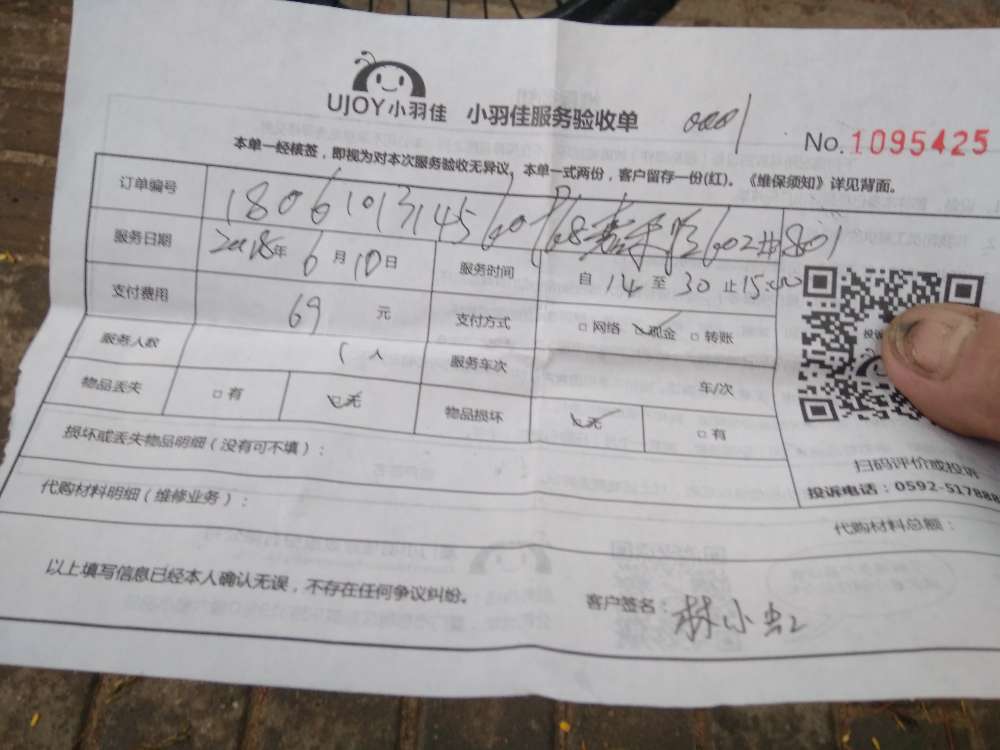 UJOY小羽佳 小羽佳服务验收单 0001
No.1095425
本单一经核签，即视为对本次服务验收无异议，本单一式两份，客户留存一份(红)。《维保须知》详见背面。
订单编号 180610131456 602#801
服务日期 2018年6月10日 服务时间 自14至30止15:00
支付费用 69元 支付方式 □网络 现金 □转账
服务人数 1人 服务车次 车/次
物品丢失 □有 □无 物品损坏 □无 □有
损坏或丢失物品明细（没有可不填）：
扫码评价或投诉
投诉电话：0592-517888
代购材料明细（维修业务）：
代购材料总额：
以上填写信息已经本人确认无误，不存在任何争议纠纷。
客户签名：林小虹